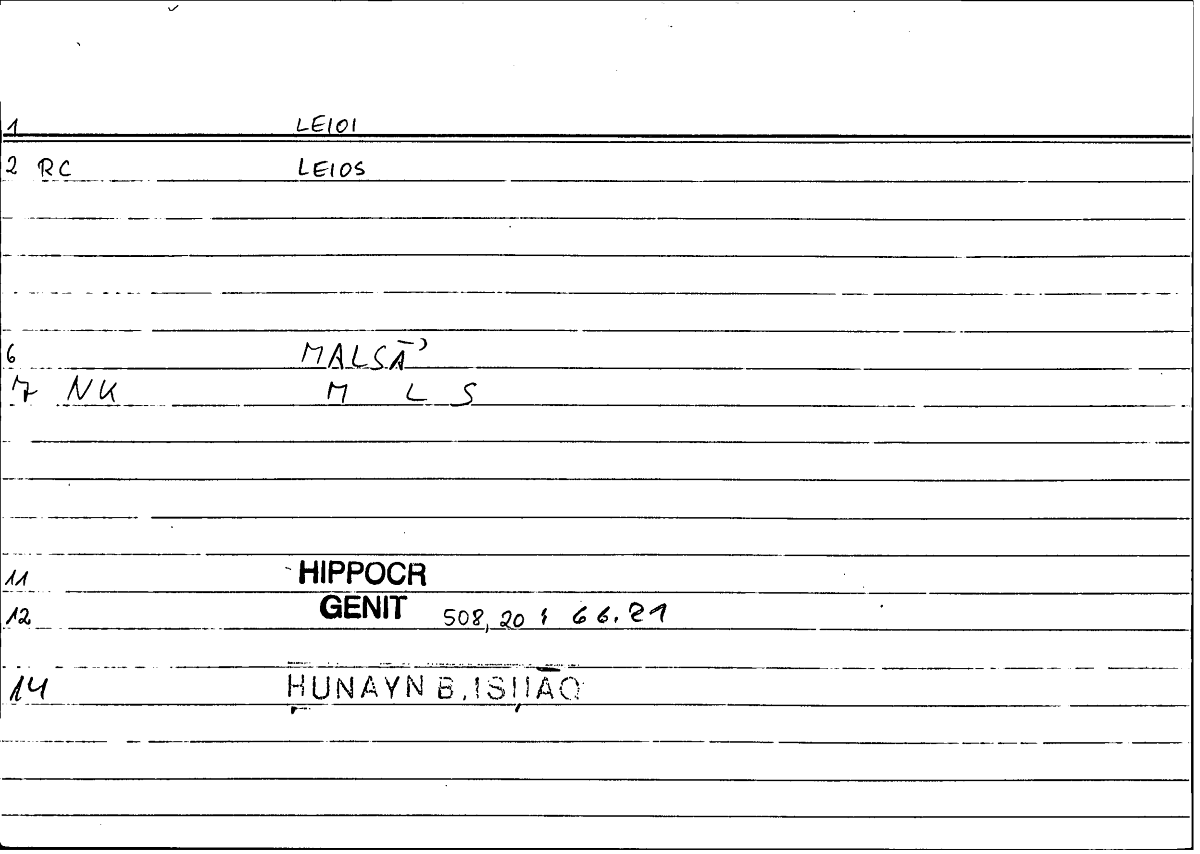 1 LEIOI
2 RC LEIOS
6 MALSĀʾ
7 NK M L S
11 HIPPOCR
12 GENIT 508,20 ; 66.21
14 ḤUNAYN B. ISḤĀQ